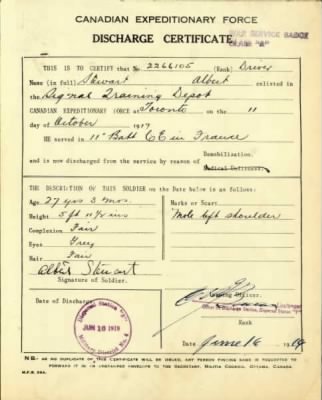 CANADIAN EXPEDITIONARY FORCE
DISCHARGE CERTIFICATE
WAR SERVICE BADGE
CLASS "A"
THIS IS TO CERTIFY that No. 2266105 (Rank) Driver
Name (in full) Stewart Albert enlisted in
the Signal Training Depot
CANADIAN EXPEDITIONARY FORCE at Toronto on the 11
day of October 1917
HE served in 11" Batt C E in France
and is now discharged from the service by reason of
Demobilization.
Medical Unfitness.
THE DESCRIPTION OF THIS SOLDIER on the Date below is as follows:
Age 27 yrs 3 mos.
Height 5 ft
Complexion Fair
Eyes Grey
Hair Fair
Marks or Scars
Mole left shoulder
Albert Stewart
Signature of Soldier.
Issuing Officer.
Date of Discharge
JUN 16 1919
Rank
Date June 16 1919
NB:— AS NO DUPLICATE OF THIS CERTIFICATE WILL BE ISSUED, ANY PERSON FINDING SAME IS REQUESTED TO
FORWARD IT IN AN UNSTAMPED ENVELOPE TO THE SECRETARY, MILITIA COUNCIL, OTTAWA, CANADA.